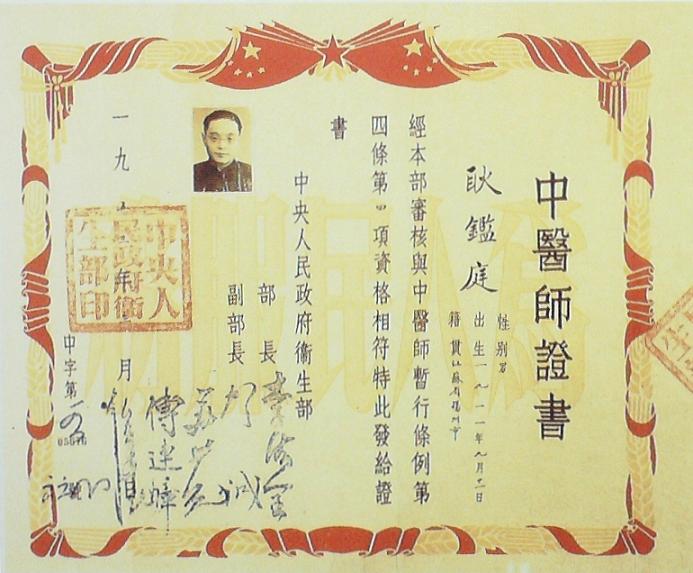 中醫師證書
耿鑑庭
性別男
出生一九一一年九月十一日
籍貫江蘇省揚州市
經本部審核與中醫師暫行條例第
四條第四項資格相符特此發給證
書
中央人民政府衞生部
部長李德全
副部長賀誠
蘇井觀
傅連暲
一九
月
中央人
民政府衞
生部印
中字第
為人民服務